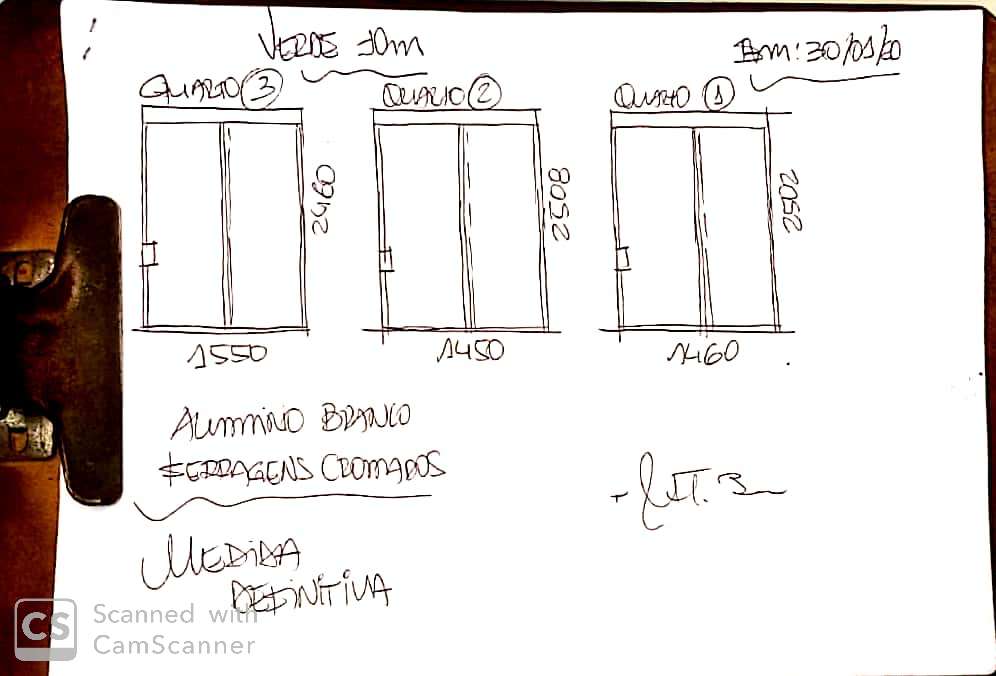 VERDE 10m
Em: 30/01/20
QUARTO 3
QUARTO 2
QUARTO 1
2460
2508
2502
1550
1450
1460
ALUMINIO BRANCO
FERRAGENS CROMADOS
MEDIDA
DEFINITIVA
CS
Scanned with
CamScanner